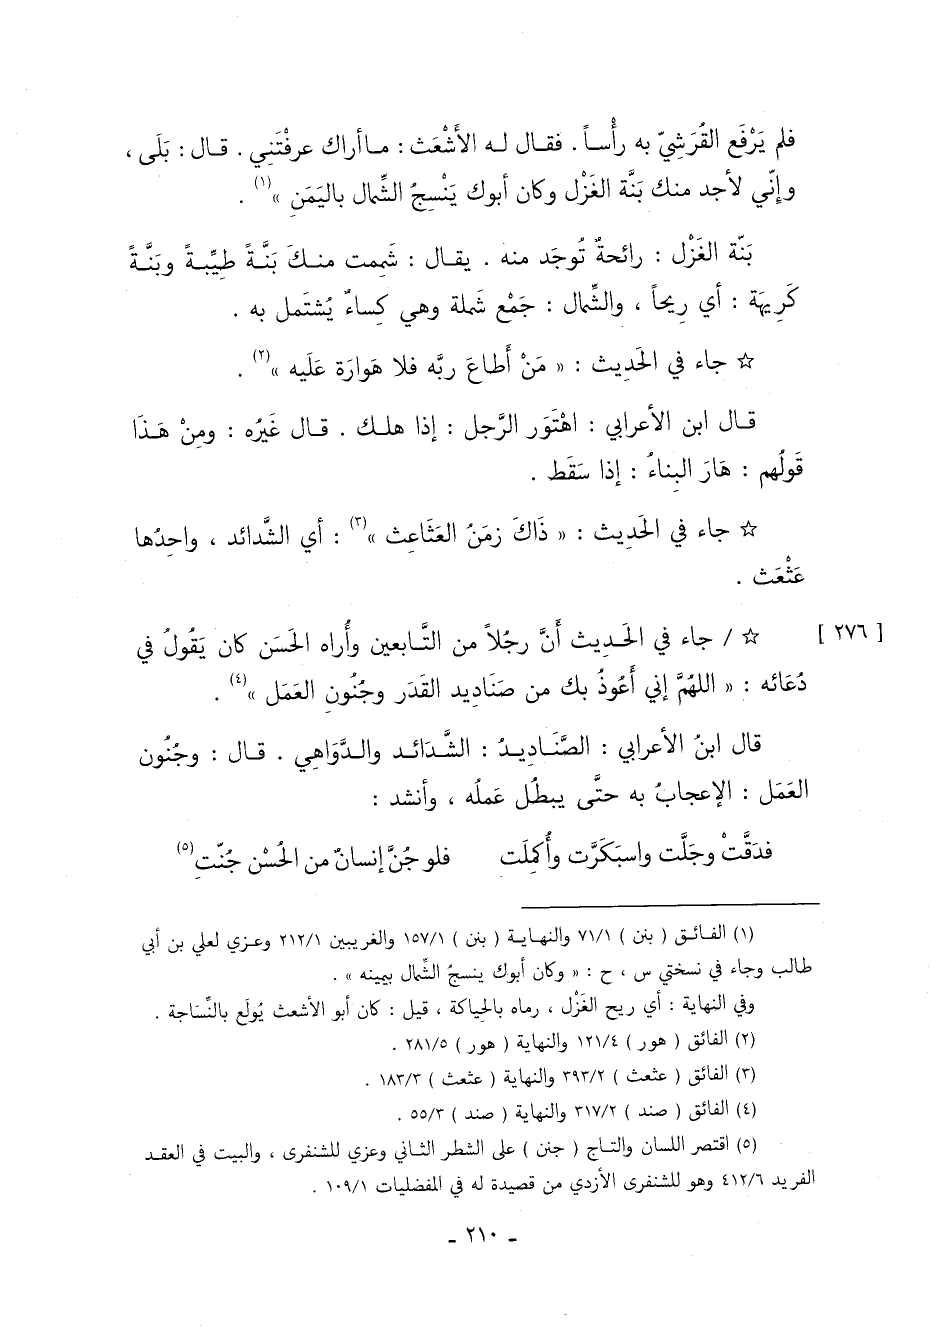 فلم يَرْفَع القُرَشِيّ به رأْساً . فقـال لـه الأَشْعَث : مـا أراك عرفْتَني . قـال : بَلَى ،
وإنّي لأجد منك بَنَّة الغَزْل وكان أبوك يَنْسِجُ الشِّمال باليَمَنِ »(١) .
بَنَّة الغَزْل : رائحةٌ تُوجَد منه . يقـال : شَمِمت منـكَ بَنَّـةً طيِّبـةً وبَنَّـةً
كَرِيهَة : أي رِيحاً ، والشِّمال : جَمْع شَملة وهي كِساءٌ يُشتَمل به .
☆ جاء في الحَدِيث : « مَنْ أَطاعَ ربَّه فلا هَوارَة عَلَيه »(٢) .
قـال ابن الأعرابي : اهْتَوَر الرَّجل : إذا هلـك . قـال غَيرُه : ومِنْ هَـذَا
قَولُهم : هَارَ البِناءُ : إذا سَقَط .
☆ جاء في الحَدِيث : « ذَاكَ زمَنُ العَثَاعِث »(٣) : أي الشَّدائد ، واحِدُها
عَثْعَث .
[ ٢٧٦ ] ☆ / جاء في الحَـديث أَنَّ رجُلاً من التَّـابعين وأُراه الحَسَن كان يَقُولُ في
دُعَائه : « اللهُمَّ إني أَعُوذُ بك من صَنَادِيد القَدَر وجُنُون العَمَل »(٤) .
قال ابنُ الأعرابي : الصَّنَـادِيـدُ : الشَّـدَائـد والـدَّوَاهِي . قـال : وجُنُون
العَمَل : الإعجابُ به حتَّى يبطُل عَملُه ، وأنشد :
فدَقَّتْ وجَلَّت واسبَكَرَّت وأُكمِلَت فلو جُنَّ إنسانٌ من الحُسْن جُنّتِ(٥)
(١) الفـائـق ( بنن ) ٧١/١ والنهايـة ( بنن ) ١٥٧/١ والغريبين ٢١٢/١ وعـزي لعلي بن أبي
طالب وجاء في نسختي س ، ح : « وكان أبوك ينسجُ الشِّمال بيمينه » .
وفي النهاية : أي ريح الغَزْل ، رماه بالحياكة ، قيل : كان أبو الأشعث يُولَع بالنِّسَاجة .
(٢) الفائق ( هور ) ١٢١/٤ والنهاية ( هور ) ٢٨١/٥ .
(٣) الفائق ( عثعث ) ٣٩٣/٢ والنهاية ( عثعث ) ١٨٣/٣ .
(٤) الفائق ( صند ) ٣١٧/٢ والنهاية ( صند ) ٥٥/٣ .
(٥) اقتصر اللسان والتـاج ( جنن ) على الشطر الثـاني وعزي للشنفرى ، والبيت في العقـد
الفريد ٤١٢/٦ وهو للشنفرى الأزدي من قصيدة له في المفضليات ١٠٩/١ .
ـ ٢١٠ ـ